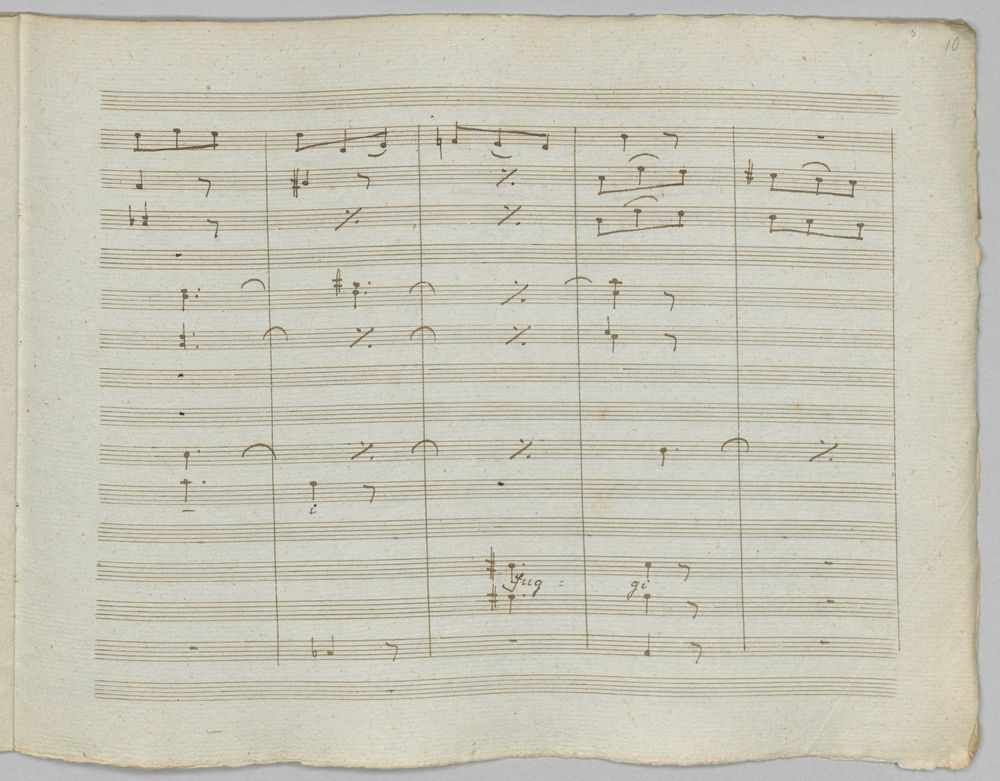 10
i
fug = gi